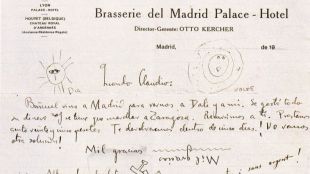 LYON
PALACE - HOTEL
HOUYET (BELGIQUE)
CHATEAU ROYAL
D'ARDENNES
Brasserie del Madrid Palace - Hotel
Director-Gerente: OTTO KERCHER
Madrid, de 19
Querido Claudio:
Buñuel vino a Madrid para vernos a Dalí y a mí. Se gastó todo
su dinero y tiene que marchar a Zaragoza. Recurrimos a ti. Préstanos
ciento veinte y cinco pesetas. Te devolveremos dentro de cinco días! No vemos
otra solución!
Mil gracias
Mil gracias
urgent!